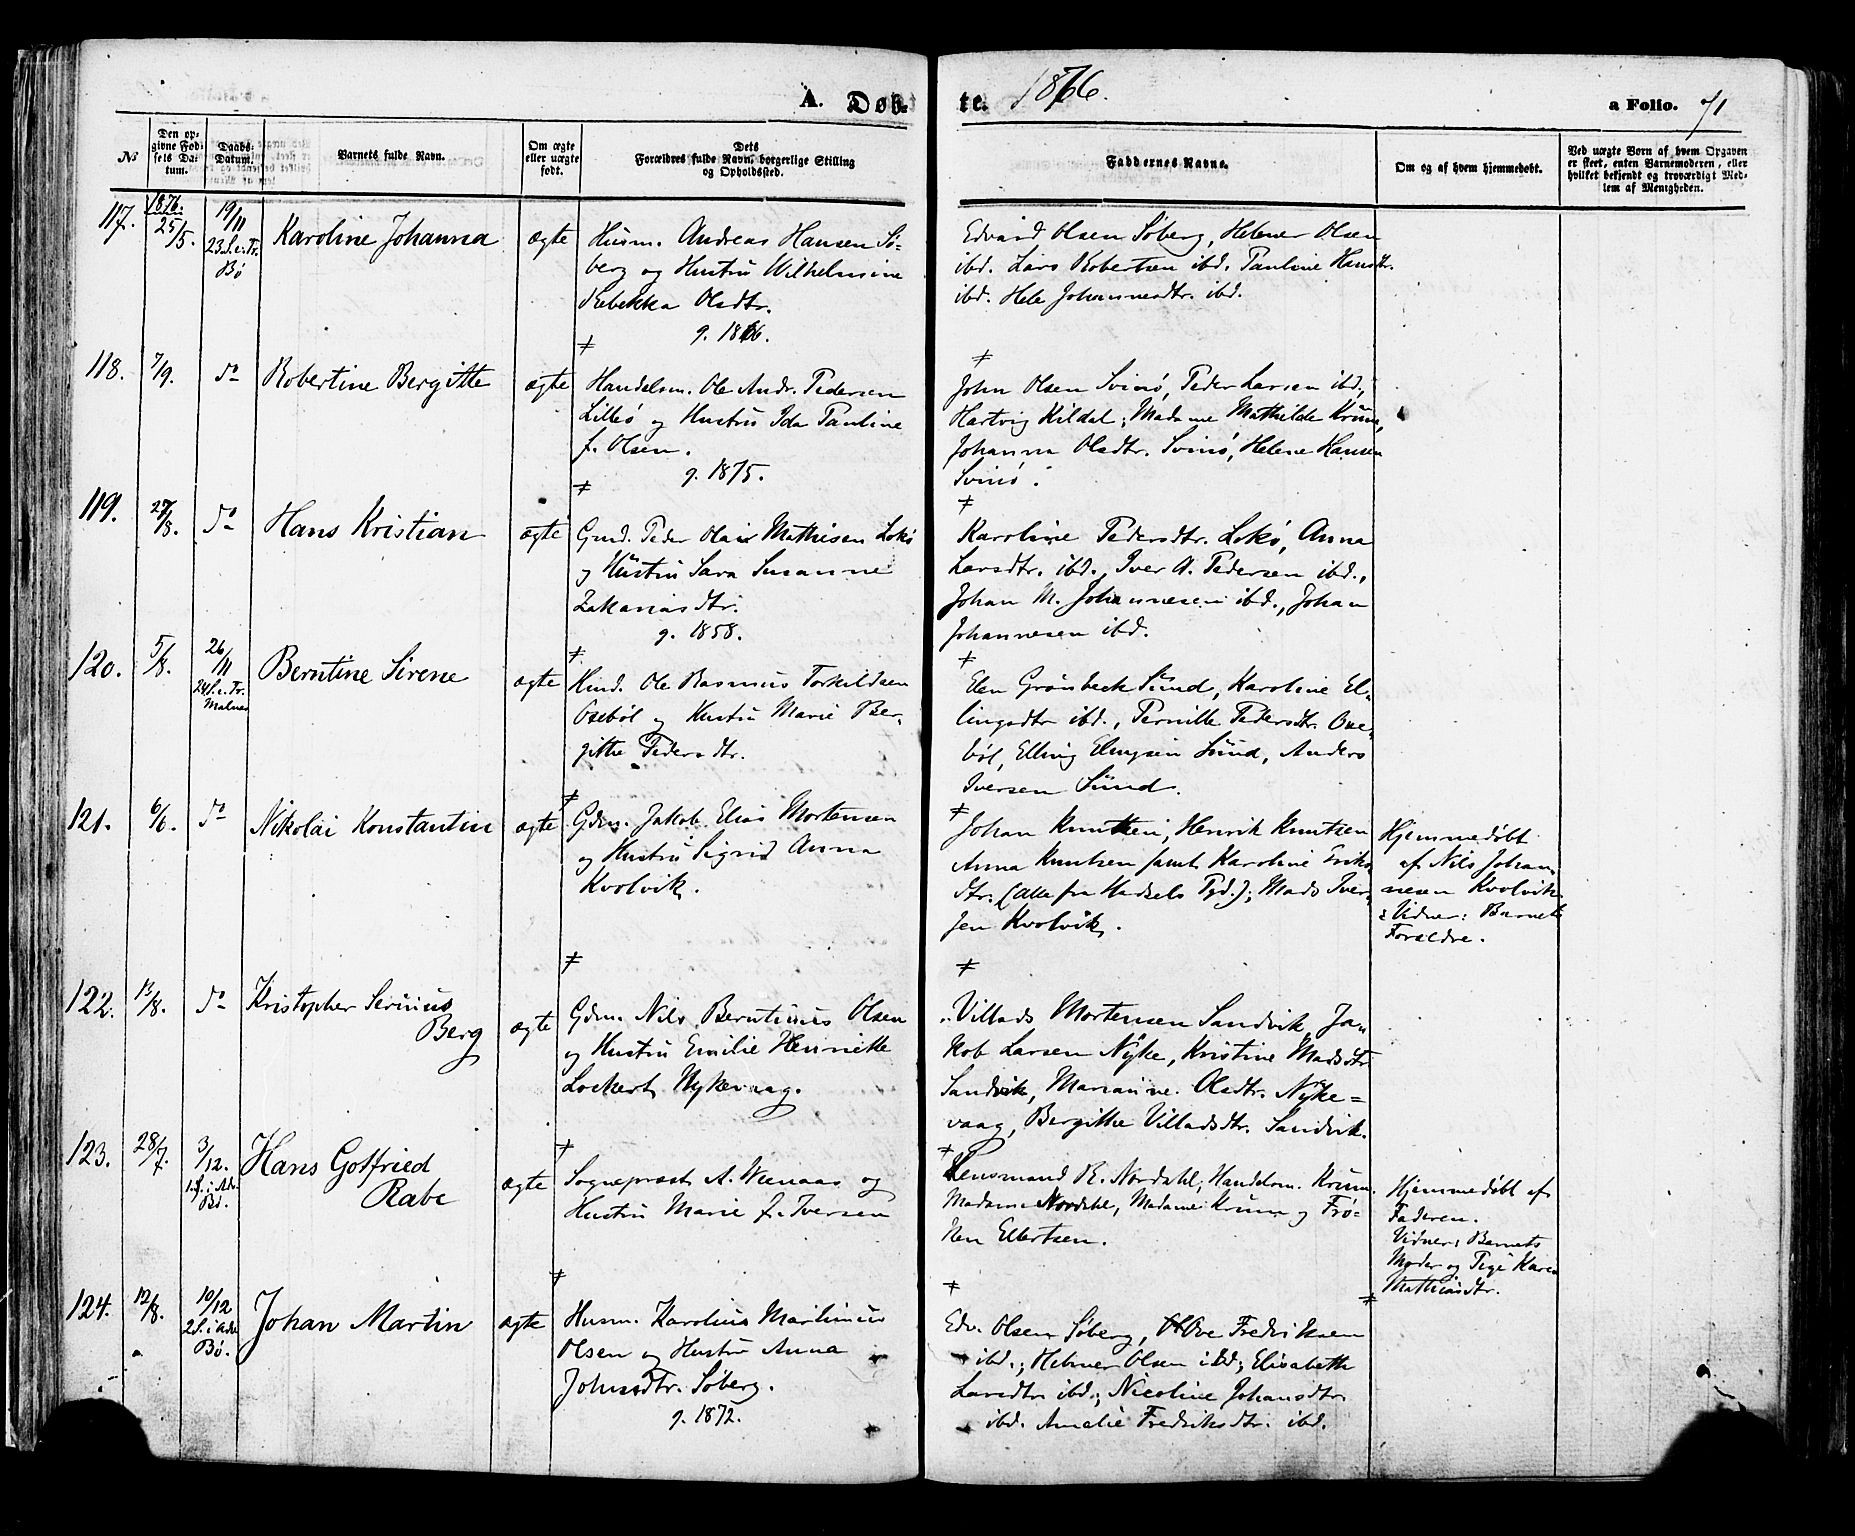 A. Døb-
te. 1876.
a Folio. 71
№
Den op-
givne Fød-
sels Da-
tum.
Daabs-
Datum.
Barnets fulde Navn.
Om ægte
eller uægte
født.
Dets
Forældres fulde Navn, borgerlige Stilling
og Opholdssted.
Faddernes Navne.
Om og af hvem hjemmedøbt.
Ved uægte Børn af hvem Opgaven
er skeet, enten Barnemoderen, eller
hvilket bekjendt og troværdigt Med-
lem af Menigheden.
117.
1876.
25/5.
19/11
23.S.e.Tr.
Bø
Karoline Johanna
ægte
Husm. Andreas Hansen Sø-
berg og Hustru Wilhelmine
Rebekka Olsdtr.
g. 1866.
Edvard Olsen Søberg, Helmer Olsen
ibd. Lars Robertsen ibd. Pauline Hansdtr.
ibd. Hele Johannesdtr. ibd.
118.
7/9.
do
Robertine Bergitte
ægte
Handelsm. Ole Andr. Pedersen
Lillø og Hustru Ida Pauline
f. Olsen.
g. 1875.
John Olsen Svinø, Peder Larsen ibd.,
Hartvig Kildal; Madame Mathilde Krum,
Johanna Olsdtr. Svinø, Helene Hansen
Svinø.
119.
27/8.
do
Hans Kristian
ægte
Gmd. Peder Olai Mathisen Lokø
og Hustru Sara Susanne
Zakariasdtr.
g. 1858.
Karoline Pedersdtr. Lokø, Anna
Larsdtr. ibd., Iver A. Pedersen ibd.,
Johan M. Johannesen ibd., Johan
Johannesen ibd.
120.
5/8.
26/11
24 S.e.Tr.
Malnes
Berntine Sirene
ægte
Ole Rasmus Torkildsen
Osebøl og Hustru Marie Ber-
githe Pedersdtr.
Elen Grønbeck Sund, Karoline El-
lingsdtr ibd., Pernille Pedersdtr. Ose-
bøl, Elling Sund, Anders
Iversen Sund.
121.
6/6.
do
Nikolai Konstantin
ægte
Gdm. Jakob Elias Mortensen
og Hustru Sigrid Anna
Kvolvik.
Johan Knutsen, Henrik Knutsen
Anna Knutsen samt Karoline Eriks-
dtr. (alle fra Hadsels Pgd.); Mads Iver-
sen Kvolvik.
Hjemmedøbt
af Nils Johan-
nesen Kvolvik
Vidner: Barnets
Forældre.
122.
13/8.
do
Kristopher Serinius
Berg
ægte
Gdm. Nils Berntinus Olsen
og Hustru Emilie Henriette
Lockert Nykevaag.
Villads Mortensen Sandvik, Ja-
kob Larsen Nyke, Kristine Madsdtr
Sandvik, Marianne Olsdtr. Nyke=
vaag, Bergitha Villadsdtr. Sandvik.
123.
28/7.
3/12.
1.S. i Adv.
Bø.
Hans Gotfried
Rabe
ægte
Sogneprest A. Wenaas og
Hustru Marie f. Iversen
Lensmand R. Nordahl, Handelsm. Krum.
Madame Nordahl, Madame Krum og Frø-
ken Ellertsen.
Hjemmedøbt af
Faderen.
Vidner: Barnets
Moder og Pige Karen
Mathiasdtr.
124.
12/8.
10/12
2 S. i Adv
Bø.
Johan Martin
ægte
Husm. Karolius Martinius
Olsen og Hustru Anna
Johnsdtr. Søberg.
g. 1872.
Edv. Olsen Søberg, Ove Fredriksen
ibd.; Helmer Olsen ibd; Elisabeth
Larsdtr ibd.; Nicoline Johansdtr
ibd. Amalie Fredriksdtr. ibd.